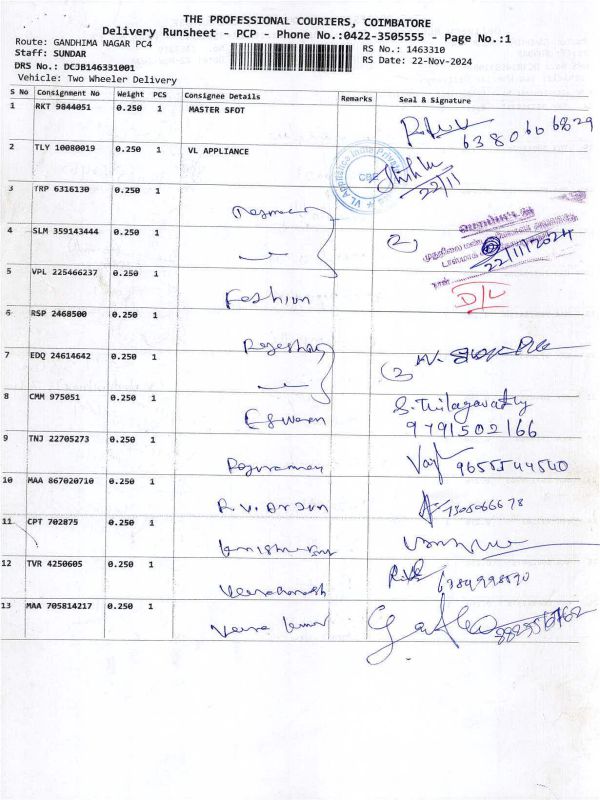 THE PROFESSIONAL COURIERS, COIMBATORE
Delivery Runsheet - PCP - Phone No.:0422-3505555 - Page No.:1
Route: GANDHIMA NAGAR PC4
RS No.: 1463310
Staff: SUNDAR
RS Date: 22-Nov-2024
DRS No.: DCJB146331001
Vehicle: Two Wheeler Delivery
S No Consignment No Weight PCS Consignee Details Remarks Seal & Signature
1 RKT 9844051 0.250 1 MASTER SFOT
6380606829
2 TLY 10080019 0.250 1 VL APPLIANCE
CBE
22/11
3 TRP 6316130 0.250 1
4 SLM 359143444 0.250 1 2
22/11/2024
5 VPL 225466237 0.250 1 Fashion
D/L
6 RSP 2468500 0.250 1 Rajeshwar
7 EDQ 24614642 0.250 1 2
8 CMM 975051 0.250 1 Eswaran S. Thilagavathy
9791502166
9 TNJ 22705273 0.250 1 9655544540
10 MAA 867020710 0.250 1 R.V. Arjun
11 CPT 702875 0.250 1
12 TVR 4250605 0.250 1
13 MAA 705814217 0.250 1 Veera kumar